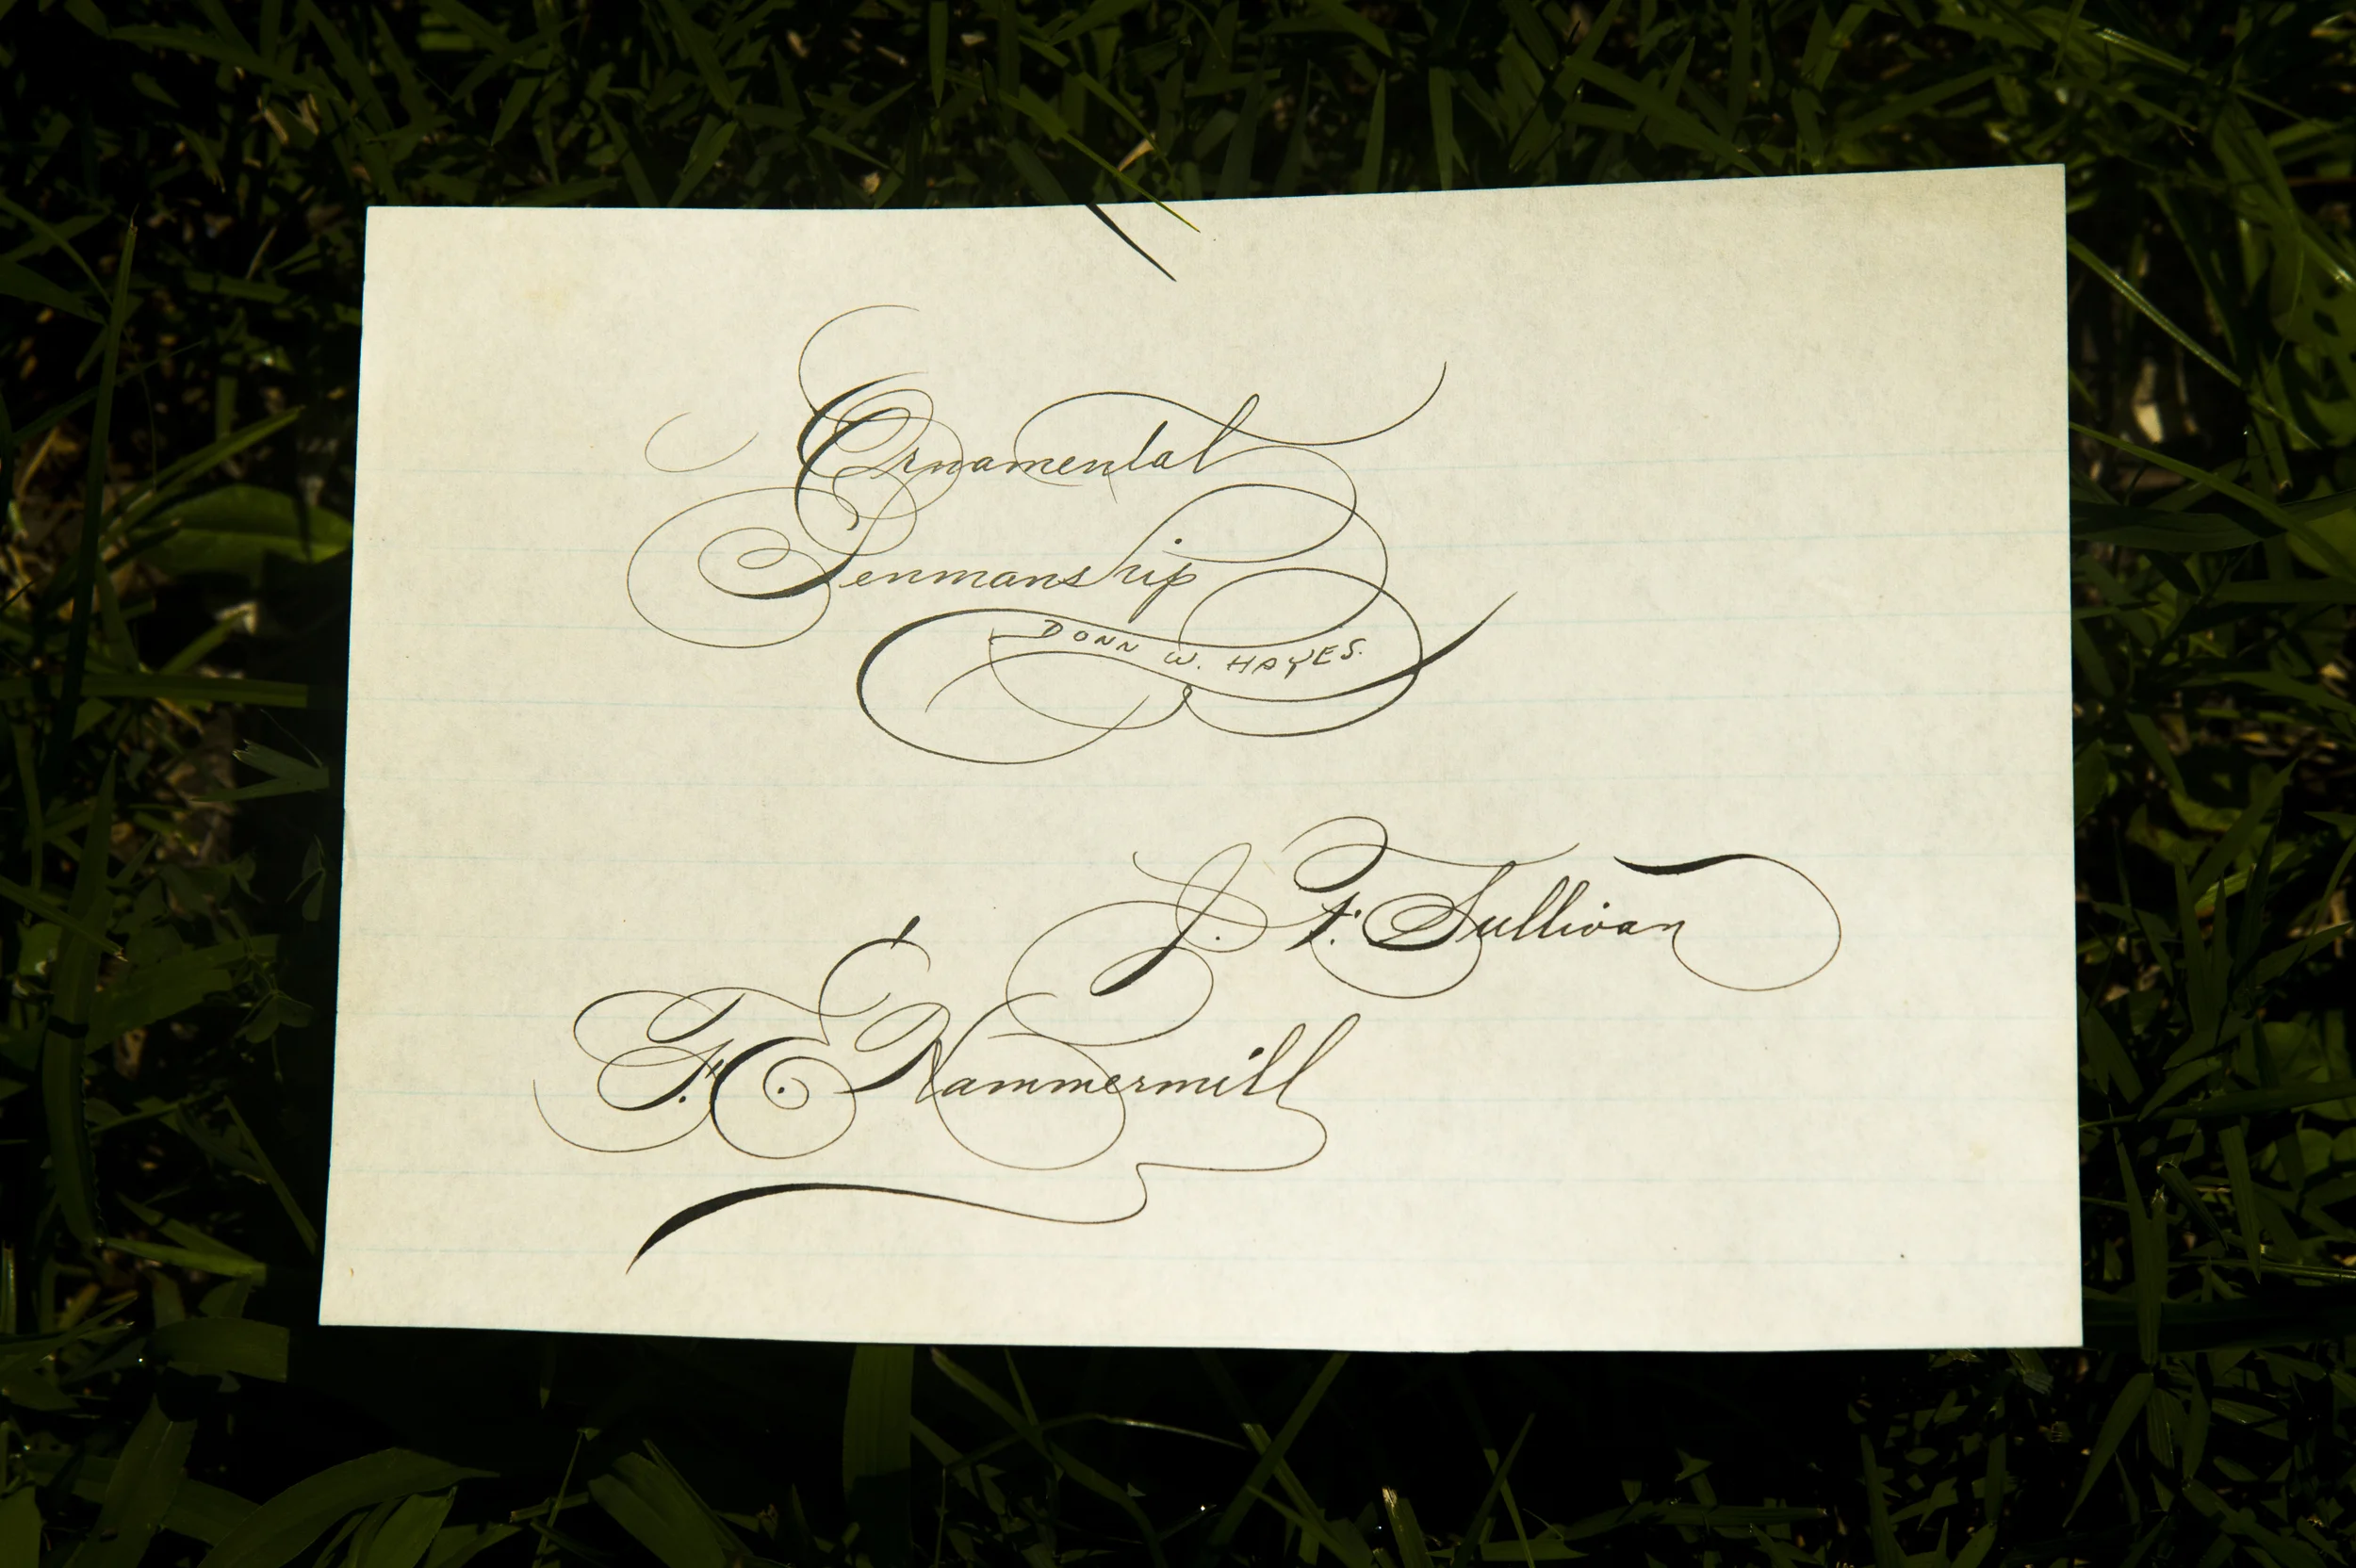 Ornamental
Penmanship
DONN W. HAYES.
J. F. Sullivan
F. E. Hammermill